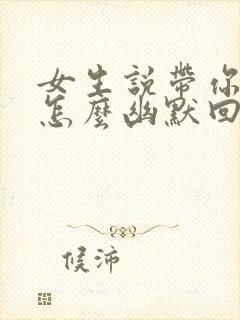 女生說帶你
怎麼幽默回
候沛